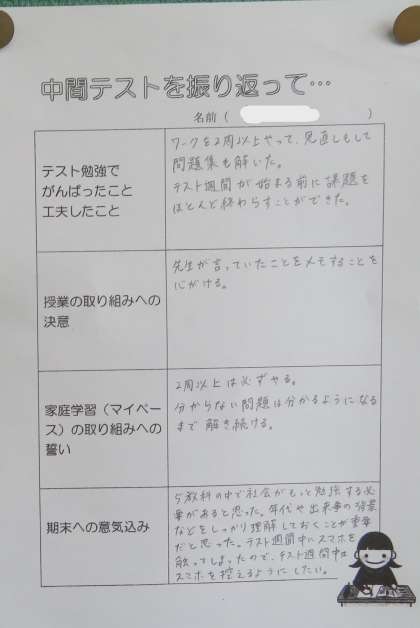 中間テストを振り返って…
名前（　　　　　）
テスト勉強で
がんばったこと
工夫したこと
ワークを2周以上やって、見直しもして
問題集も解いた。
テスト週間が始まる前に課題を
ほとんど終わらすことができた。
授業の取り組みへの
決意
先生が言っていたことをメモすることを
心がける。
家庭学習（マイペー
ス）の取り組みへの
誓い
2周以上は必ずやる。
分からない問題は分かるようになる
まで解き続ける。
期末への意気込み
5教科の中で社会がもっと勉強する必
要があると思った。年代や出来事の背景
などをしっかり理解しておくことが重要
だと思った。テスト週間中にスマホを
触ってしまったので、テスト週間中は
スマホを控えるようにしたい。